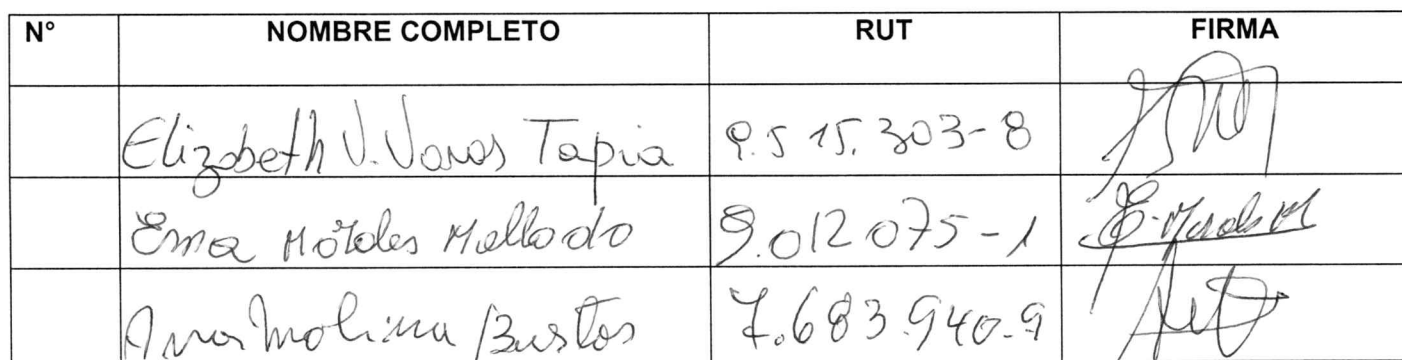 N° NOMBRE COMPLETO RUT FIRMA
Elizabeth V. Varas Tapia 9.515.303-8
Ema Morales Mellado 9.012.075-1 E. Morales M
Ana Molina Bustos 7.683.940-9